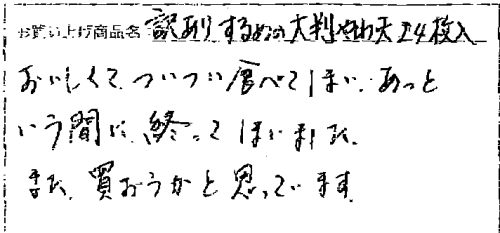 お買い上げ商品名 訳あり するめの大判やわ天 24枚入
おいしくて、ついつい食べてしまい、あっと
いう間に、終ってしまいました。
また、買おうかと思っています。